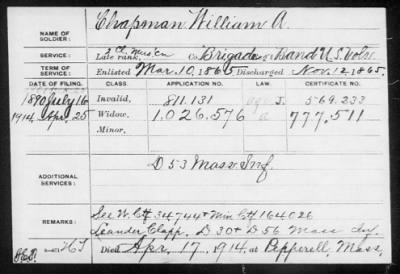 NAME OF SOLDIER: Chapman William A.
SERVICE: 3 Cl. Mus'cn Late rank, Co. Brigade Band U.S. Vols.
TERM OF SERVICE: Enlisted Mar. 10, 1865 Discharged Nov. 12, 1865.
DATE OF FILING. CLASS. APPLICATION NO. CERTIFICATE NO.
1890 July 16 Invalid, 811.131 569.233
1914. Apr. 25 Widow, 1.026.576 777,511
Minor,
ADDITIONAL SERVICES: D 53 Mass. Inf.
REMARKS: See W. Ctf 34744 & Min. Ctf 164026
Leander Clapp, D 30 & D 56 Mass Inf.
Died Apr. 17, 1914, at Pepperell, Mass.